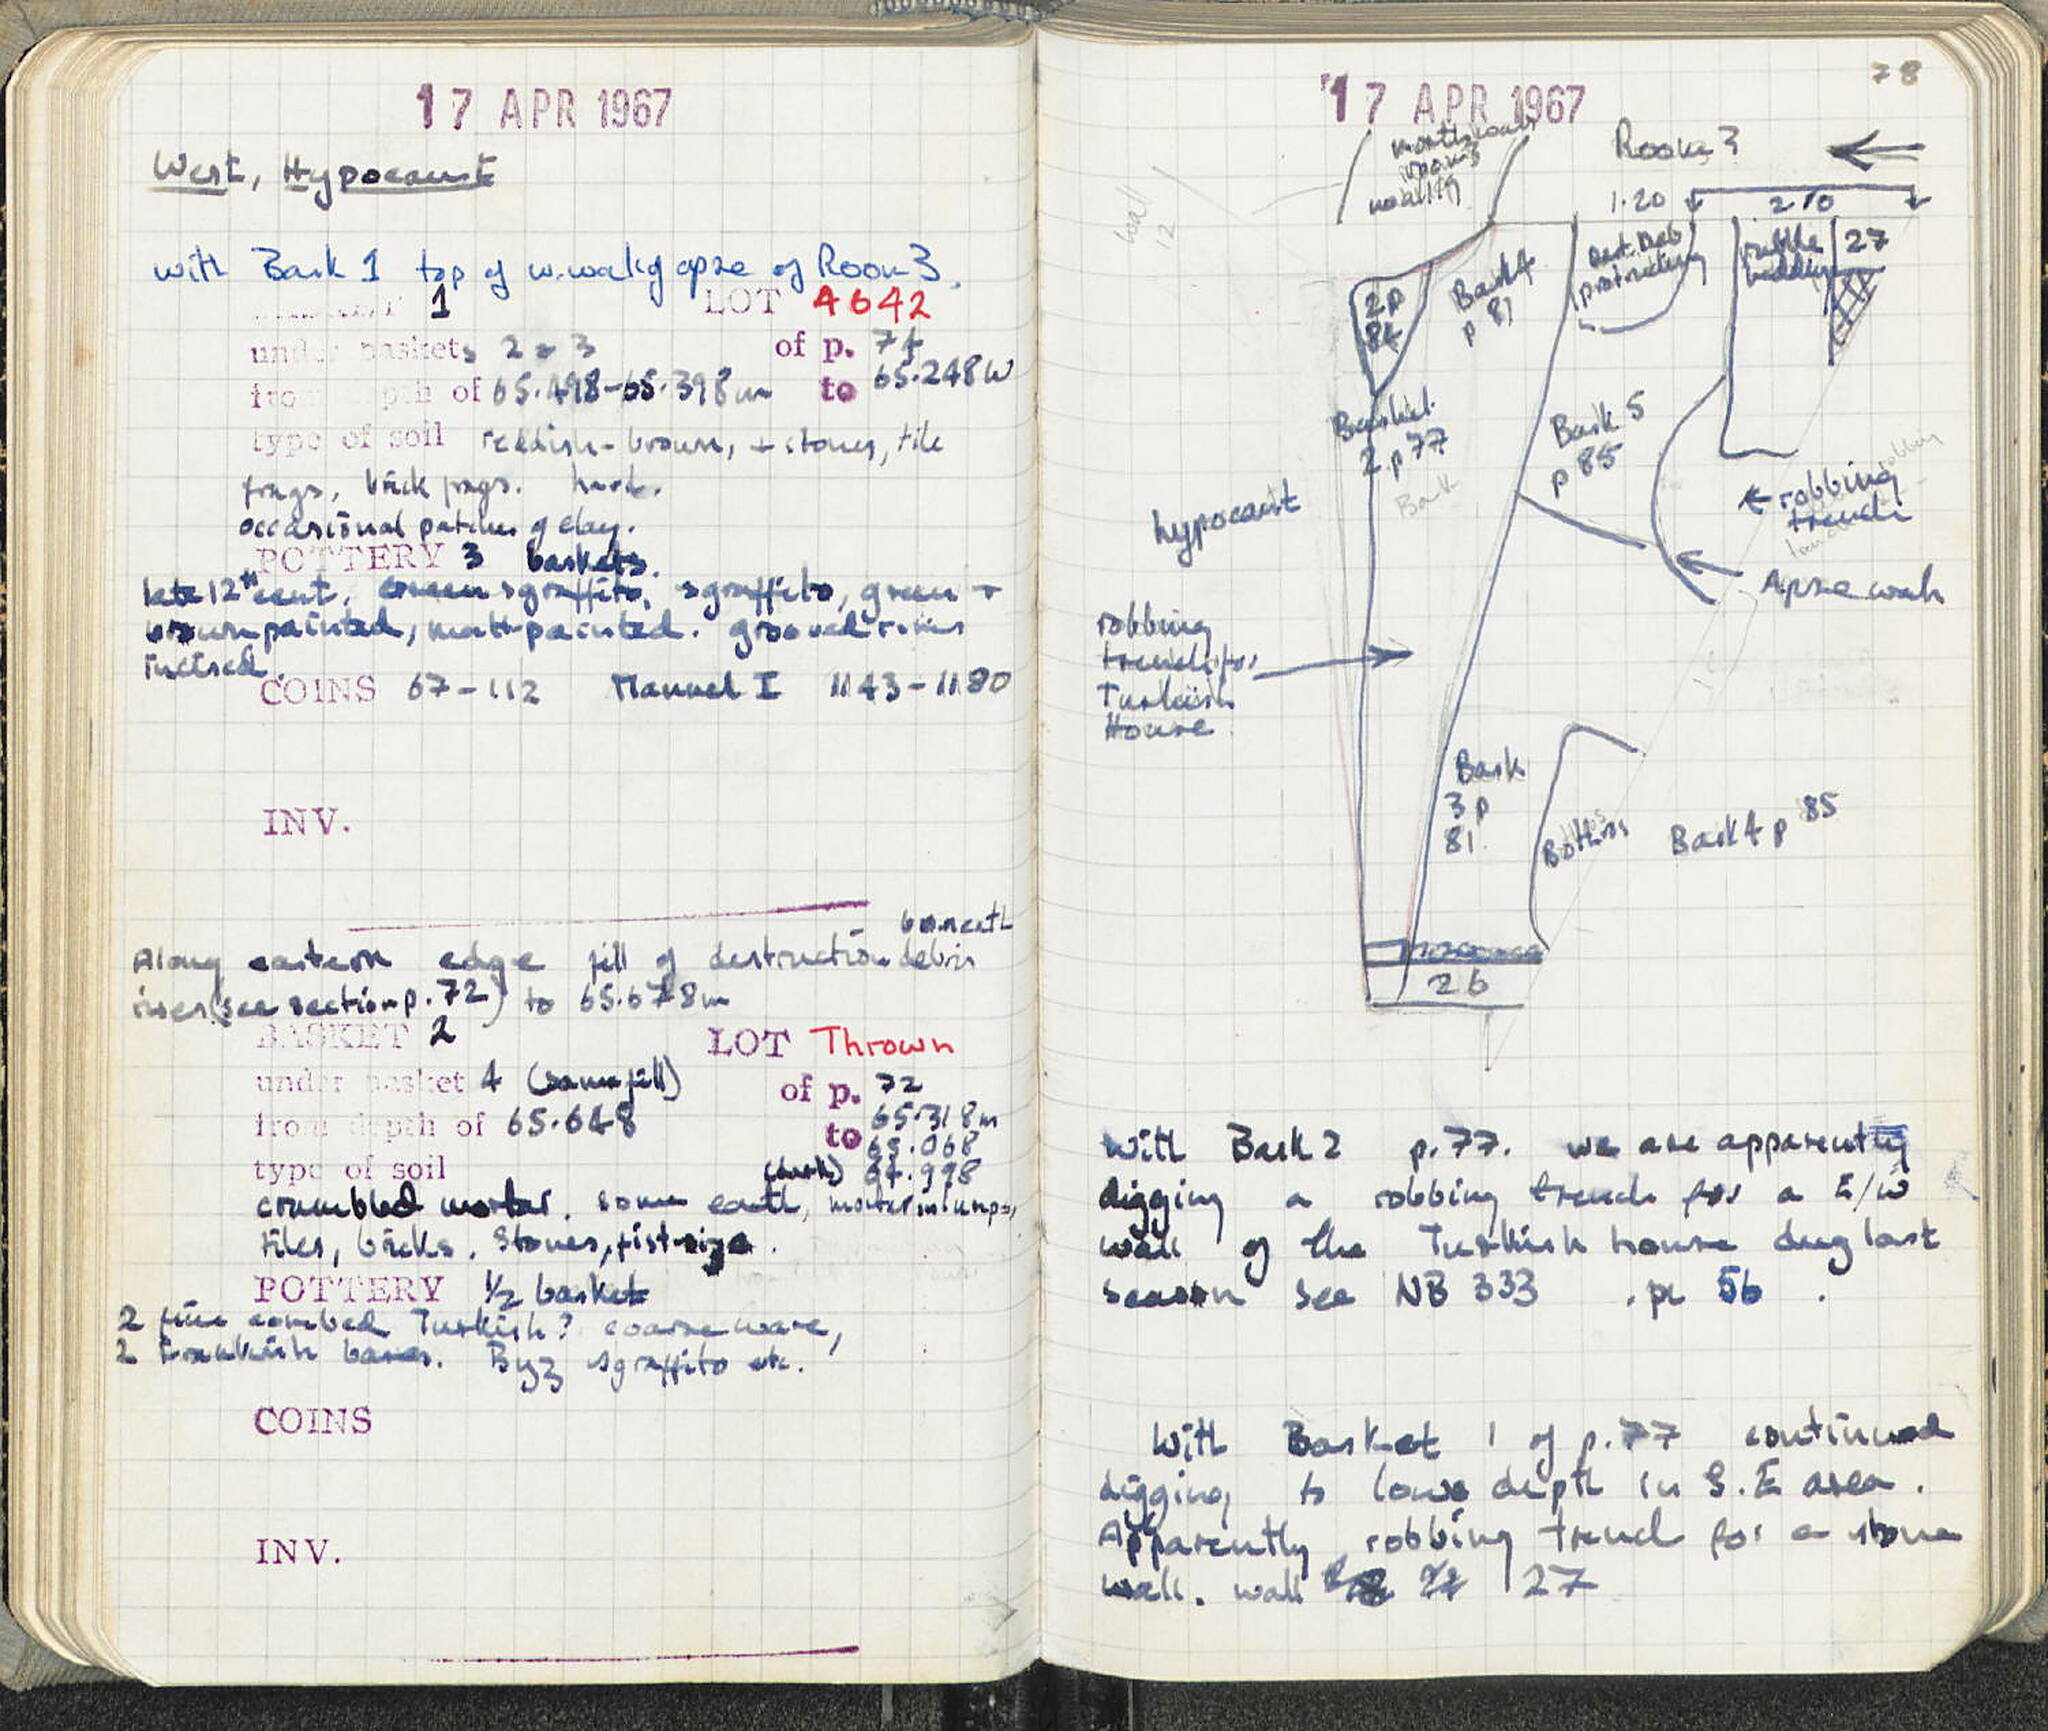 17 APR 1967
West, Hypocaust
with Bask 1 top of w. wall of apse of Room 3.
1 LOT 4642
under baskets 2 & 3 of p. 74
from depth of 65.498-65.398m to 65.248m
type of soil reddish-brown, + stones, tile
frags, brick frags. hard.
occasional patches of clay.
POTTERY 3 baskets.
late 12th cent, sgraffito, sgraffito, green +
brown painted, matt painted. grooved rims
incised.
COINS 67-112 Manuel I 1143-1180
INV.
beneath
Along eastern edge fill of destruction debris
rises (see section p. 72) to 65.678m
BASKET 2 LOT Thrown
under basket 4 (same fill) of p. 72
from depth of 65.648 to 65.318m
65.068
64.998
type of soil
crumbled mortar. some earth, mortar in lumps,
tiles, bricks. Stones, fist-size.
POTTERY 1/2 basket
2 fine combed Turkish? coarse ware,
2 Frankish bases. Byz sgraffito etc.
COINS
INV.
17 APR 1967
78
Room 3
wall
12
1.20
2.10
2 p
84
Bask 4
p 81
Dest. Deb
protruding
rubble
bedding
27
Basket
2 p 77
Bask
Bask 5
p 85
hypocaust
robbing
trench
Apse wall
robbing
trench for
Turkish
House
Bask
3 p
81.
Bothros
Bask 4 p 85
26
With Bask 2 p. 77. we are apparently
digging a robbing trench for a E/W
wall of the Turkish house dug last
season see NB 333 . p 56 .
With Basket 1 of p. 77 continued
digging to lower depth in S.E area.
Apparently robbing trench for a stone
wall. wall 27